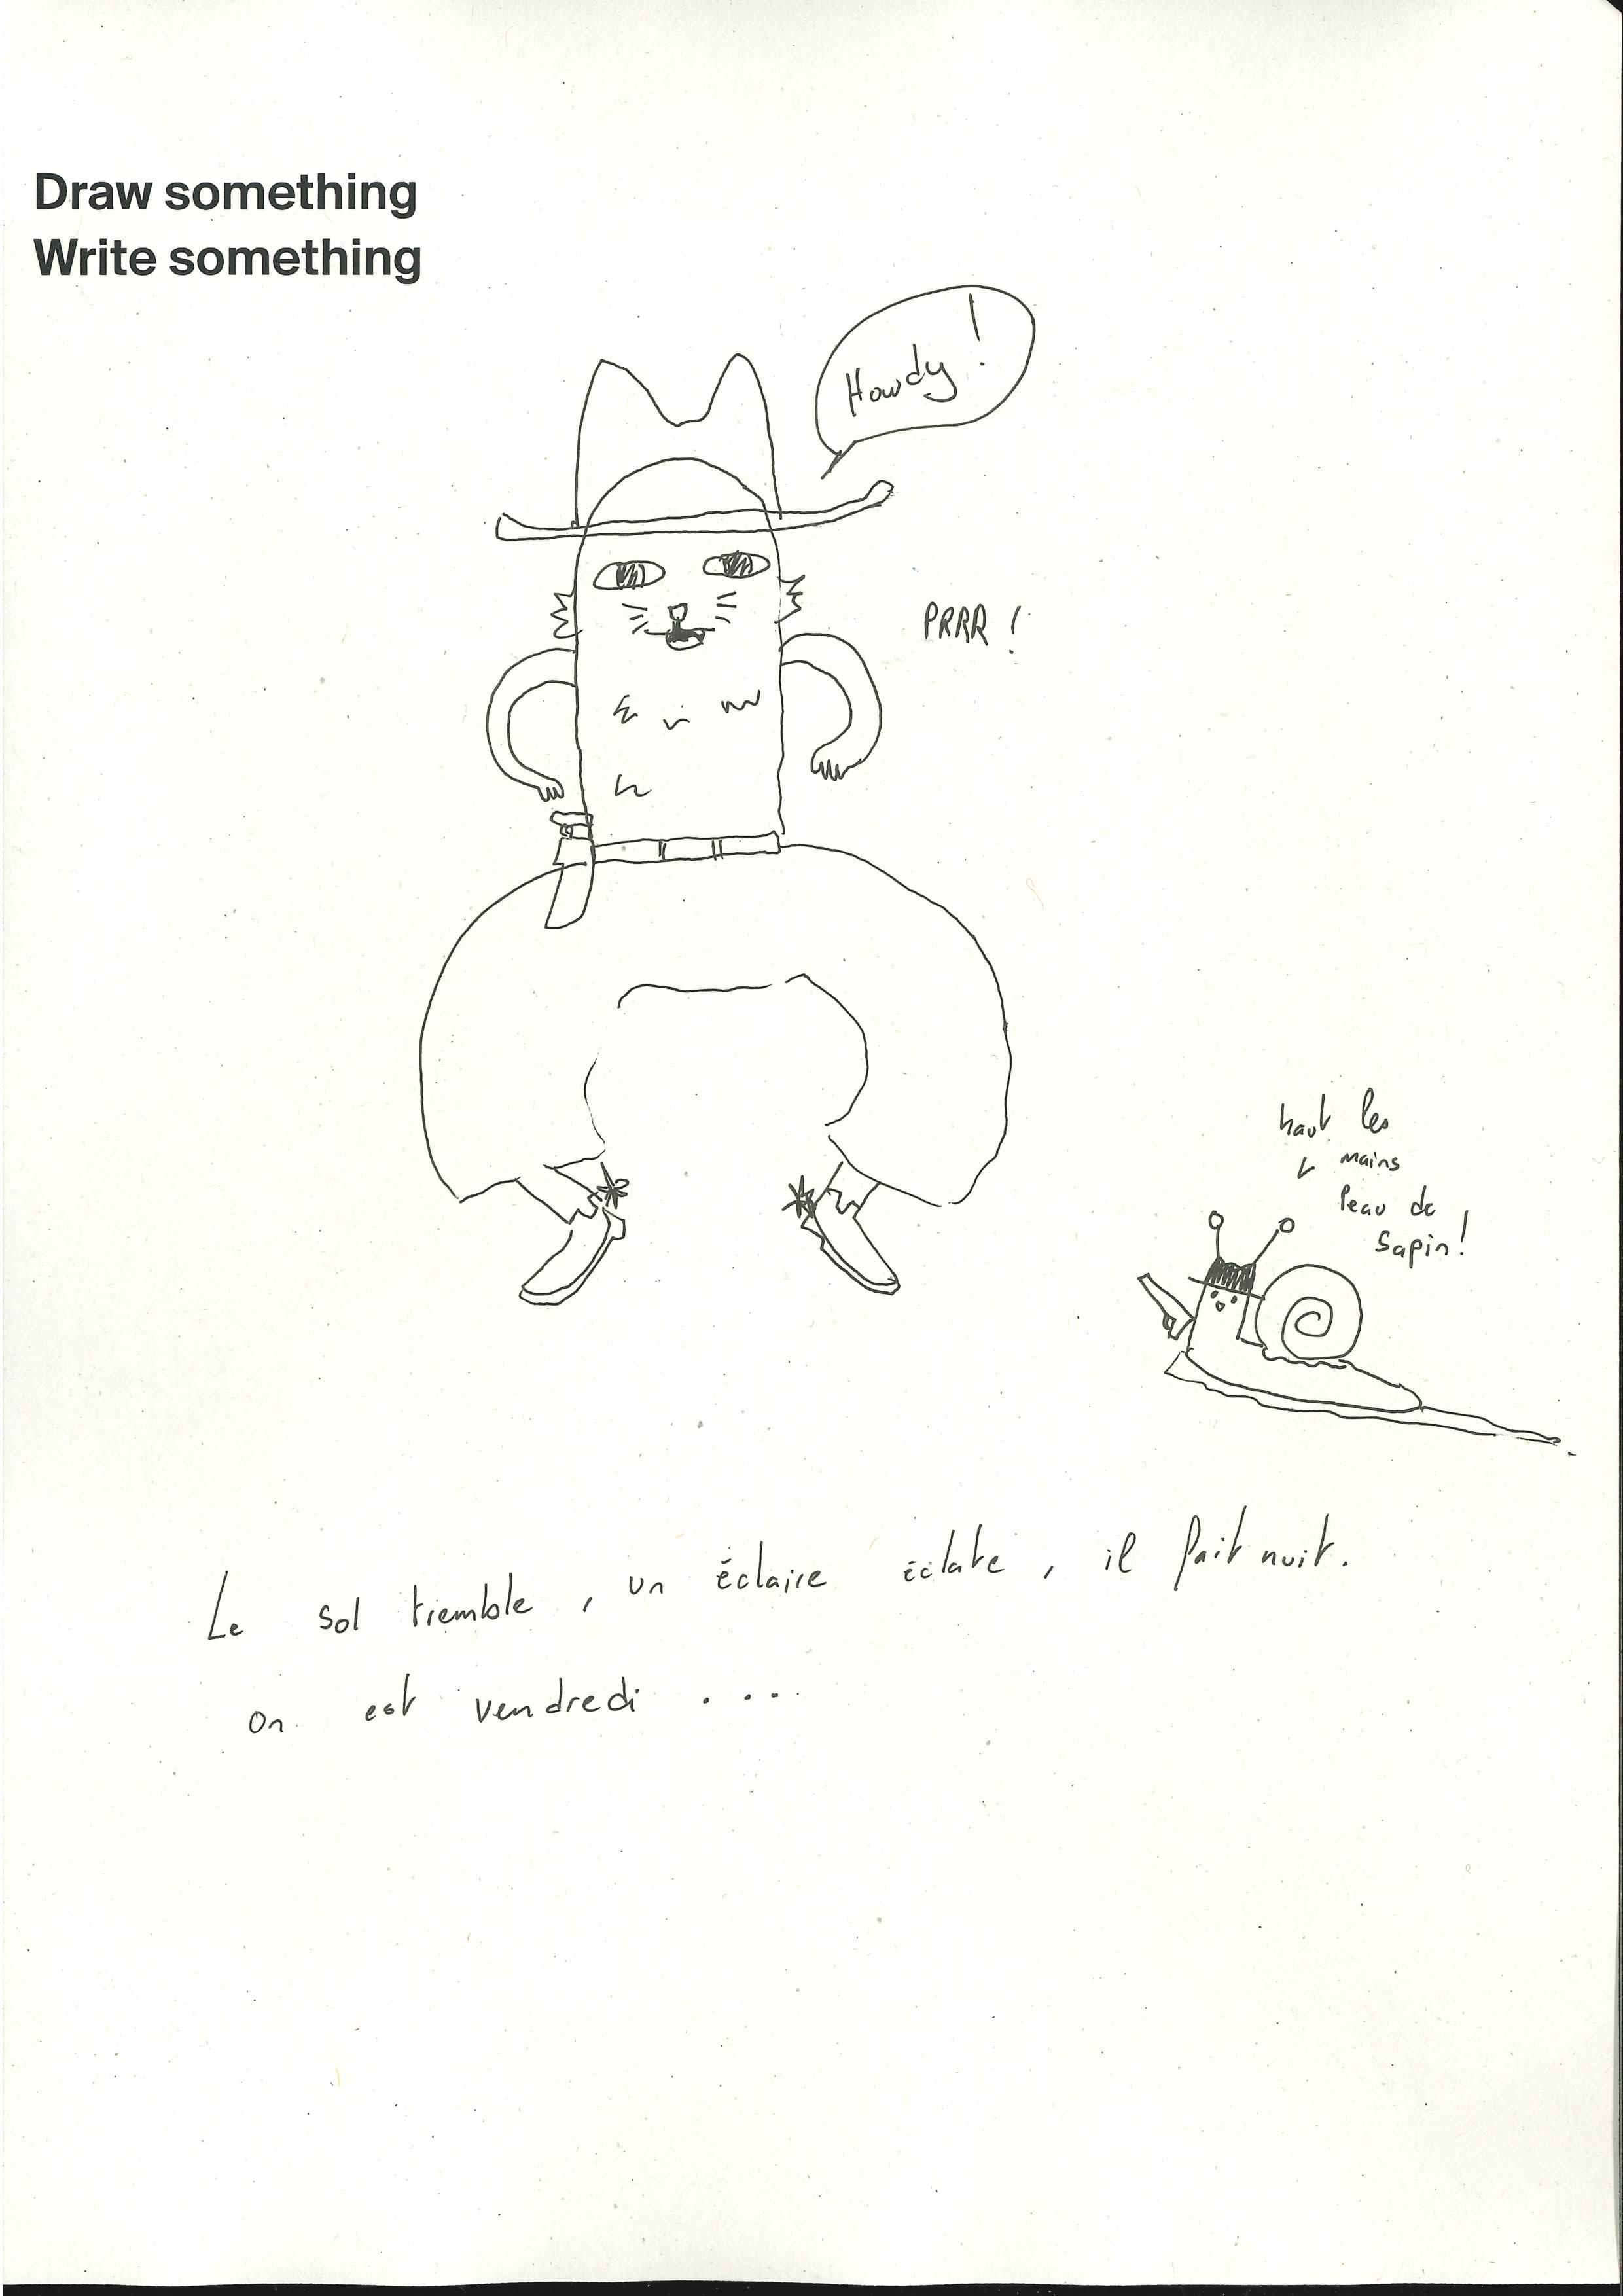 Draw something
Write something
Howdy !
PRRR !
haut les
mains
Peau de
Sapin !
Le sol tremble, un éclaire éclate, il fait nuit.
on est vendredi ....